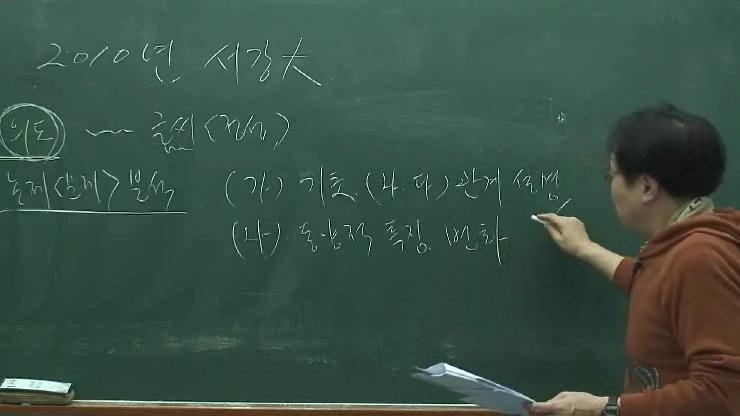 2010년 서강大
의도 ~ 글씨 <정성>
논제 <문제> 분석 (가) 기초, (나.다) 관계 설명
(나) 동양적 특징. 변화.